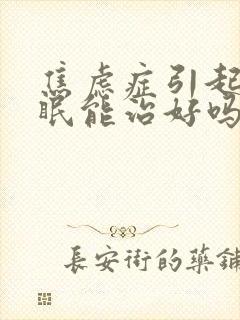 焦虑症引起
眠能治好吗
長安街的藥鋪